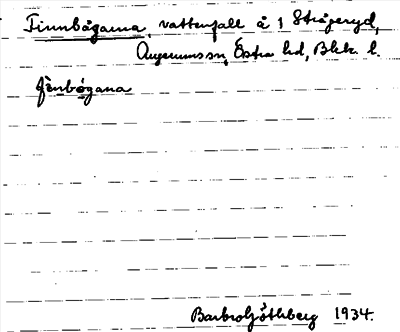 Finnbågarna, vattenfall å 1 Strågeryd,
Augerums sn, Östra hd, Blek. l.
fènbógana
Barbro Götheberg 1934.